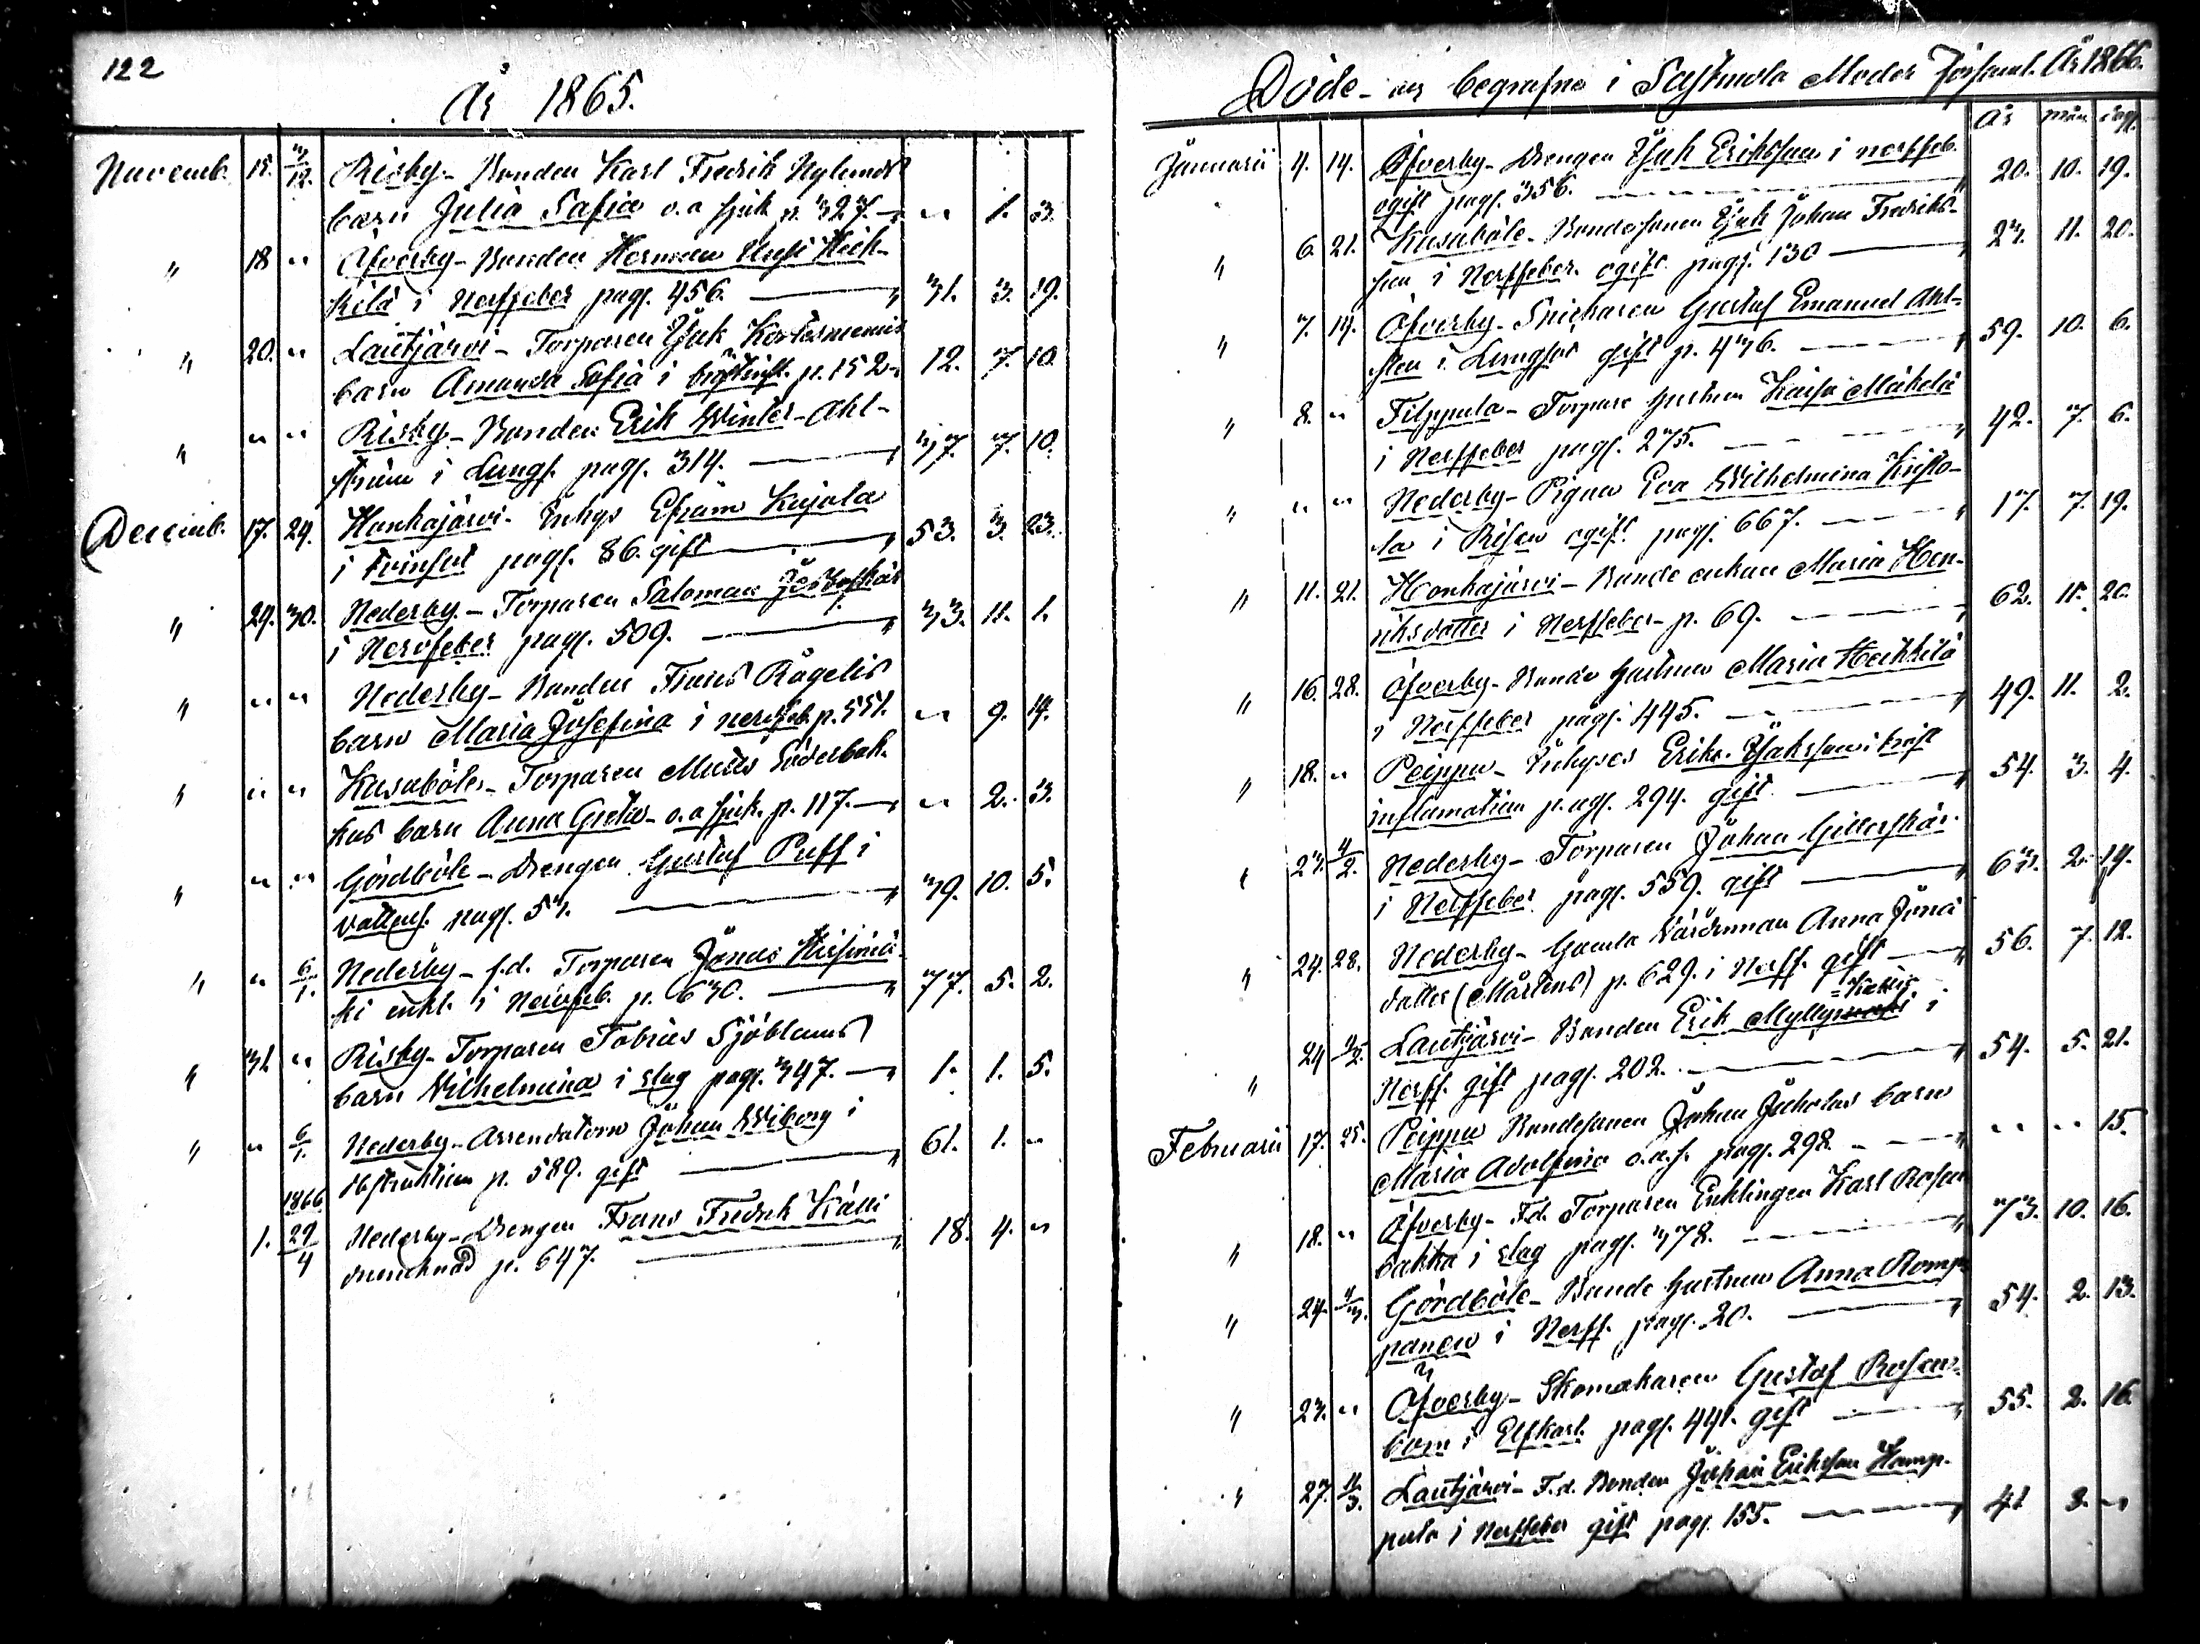 122
År 1865.
Novemb. 15. 3/12. Risby - Bonden Karl Fredrik Nylunds
barn Julia Safia o.a sjuk p. 327. " 1. 3.
" 18 " Öfverby - Bonden Herman Heik-
kilä i Nerffeber pag. 456. 31. 3. 19.
" 20. " Lautjärvi - Torparen Isak Kortesniemis
barn Amanda Sofia i p. 152. 12. 7. 10
" " " Risby - Bonden Erik Winter-Ahl-
ström i Lungs. pag. 314. 37. 7. 10.
Decemb. 17. 29. Honkajärvi - Inhys Efraim Kujala
i tvinsot pag. 86. gift 53. 3. 23.
" 29. 30. Nederby - Torparen Saloman
i Nervfeber pag. 509. 33. 11. 1.
" " " Nederby - Bonden Frans Rågelis
barn Maria Josefina i nervfeb. p. 551. " 9. 14.
" " " Kasaböle - Torparen Matts Söderbak-
kas barn Anna Greta o.a sjuk. p. 117. " 2. 3.
" " " Gördböle - Drengen Gustaf Puff i
vattus. pag. 53. 39. 10. 5.
" " 6/1. Nederby - f.d. Torparen Jonas
ki enkl. i Nervfeb. p. 630. 77. 5. 2.
" 31. " Risby - Torparen Tobias Sjöbloms
barn Vilhelmina i slag pag. 347. 1. 1. 5.
" " 6/1. Nederby - Arrendatorn Johan Wiborg i
obstruktion p. 589. gift 61. 1. "
1866
1. 29/4 Nederby - Drengen Frans Fredrik Källi
drunknad p. 647. 18. 4. "
Döde och begrafne i Sastmola Moder Församl. År 1866.
År mån dag.
Januarii 4. 14. Öfverby - Drengen Isak Eriksson i nerffeb.
ogift pag. 356. 20. 10. 19.
" 6. 21. Kasaböle - Bondesonen Isak Johan Fredriks-
son i Nerffeber. ogift pag. 130 23. 11. 20.
" 7. 14. Öfverby - Snickaren Gustaf Emanuel Ahl-
sten i Lungsot gift p. 436. 59. 10. 6.
" 8. " Filppula - Torpare hustrun Kaisa Mäkelä
i Nerffeber pag. 275. 42. 7. 6.
" " " Nederby - Pigan Eva Wilhelmina Kristo-
la i Rosen ogift pag. 667. 17. 7. 19.
" 11. 21. Honkajärvi - Bonde enkan Maria Hen-
riksdotter i Nerffeber p. 69. 62. 11. 20.
" 16. 28. Öfverby - Bonde hustrun Maria Heikkilä
i Nerffeber pag. 445. 49. 11. 2.
" 18. " Peippu - Inhyses Erik Isaksson i bröst
inflamation pag. 294. gift 54. 3. 4.
" 23. 4/2. Nederby - Torparen Johan Gillerskär
i Nerffeber pag. 559. gift 63. 2. 19.
" 24. 28. Nederby - Gamla Värdinnan Anna Jona
dotter (Mårtens) p. 629. i Nerff. gift 56. 7. 12.
" 24 Lautjärvi - Bonden Erik Mylly i
Nerff. gift pag. 202. 54. 5. 21.
Februarii 17. 25. Peippu Bondesonen Johan Juholas barn
Maria Adolfina o.a.s. pag. 298. " " 15.
" 18. " Öfverby - F.d. Torparen Enklingen Karl Rosen
backa i slag pag. 378. 73. 10. 16.
" 24. 4/3. Gördböle - Bonde hustrun Anna Romp-
panen i Nerff. pag. 20. 54. 2. 13.
" 23. " Öfverby - Skomakaren Gustaf Rosen-
bom i pag. 441. gift 55. 2. 16.
" 27. 11/3. Lautjärvi - F.d. Bonden Johan Eriksson Hamp-
pula i Nerffeber gift pag. 155. 41 3. "